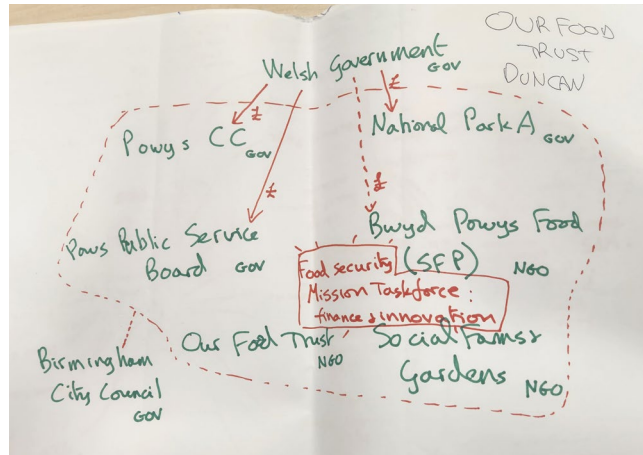 OUR FOOD
TRUST
DUNCAN
Welsh Government
GOV
£
£
£
£
Powys CC
GOV
National Park A
GOV
Paws Public Service
Board GOV
Bwyd Powys Food
(SFP) NGO
Food security
Mission Taskforce:
finance & innovation
Our Food Trust
NGO
Social Farms &
Gardens NGO
Birmingham
City Council
GOV